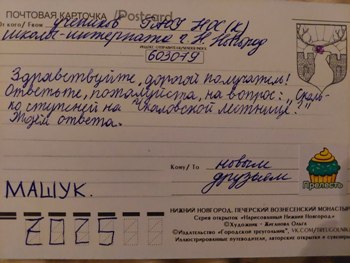 ПОЧТОВАЯ КАРТОЧКА /Postcard
От кого / From
школа-интерната г. Н. Новгород
603079
Здравствуйте, дорогой получатель!
Ответьте, пожалуйста, на вопрос: „Сколь-
ко ступеней на Чкаловской лестнице?"
Ждём ответа.
Кому / To новым
друзьям
Прелесть
МАШУК.
2025
НИЖНИЙ НОВГОРОД. ПЕЧЕРСКИЙ ВОЗНЕСЕНСКИЙ МОНАСТЫР
Серия открыток «Нарисованный Нижний Новгород»
©Художник - Жиганова Ольга
©Издательство «Городской треугольник», VK.COM/TREUGOLNIK
Иллюстрированные путеводители, авторские открытки и сувениры